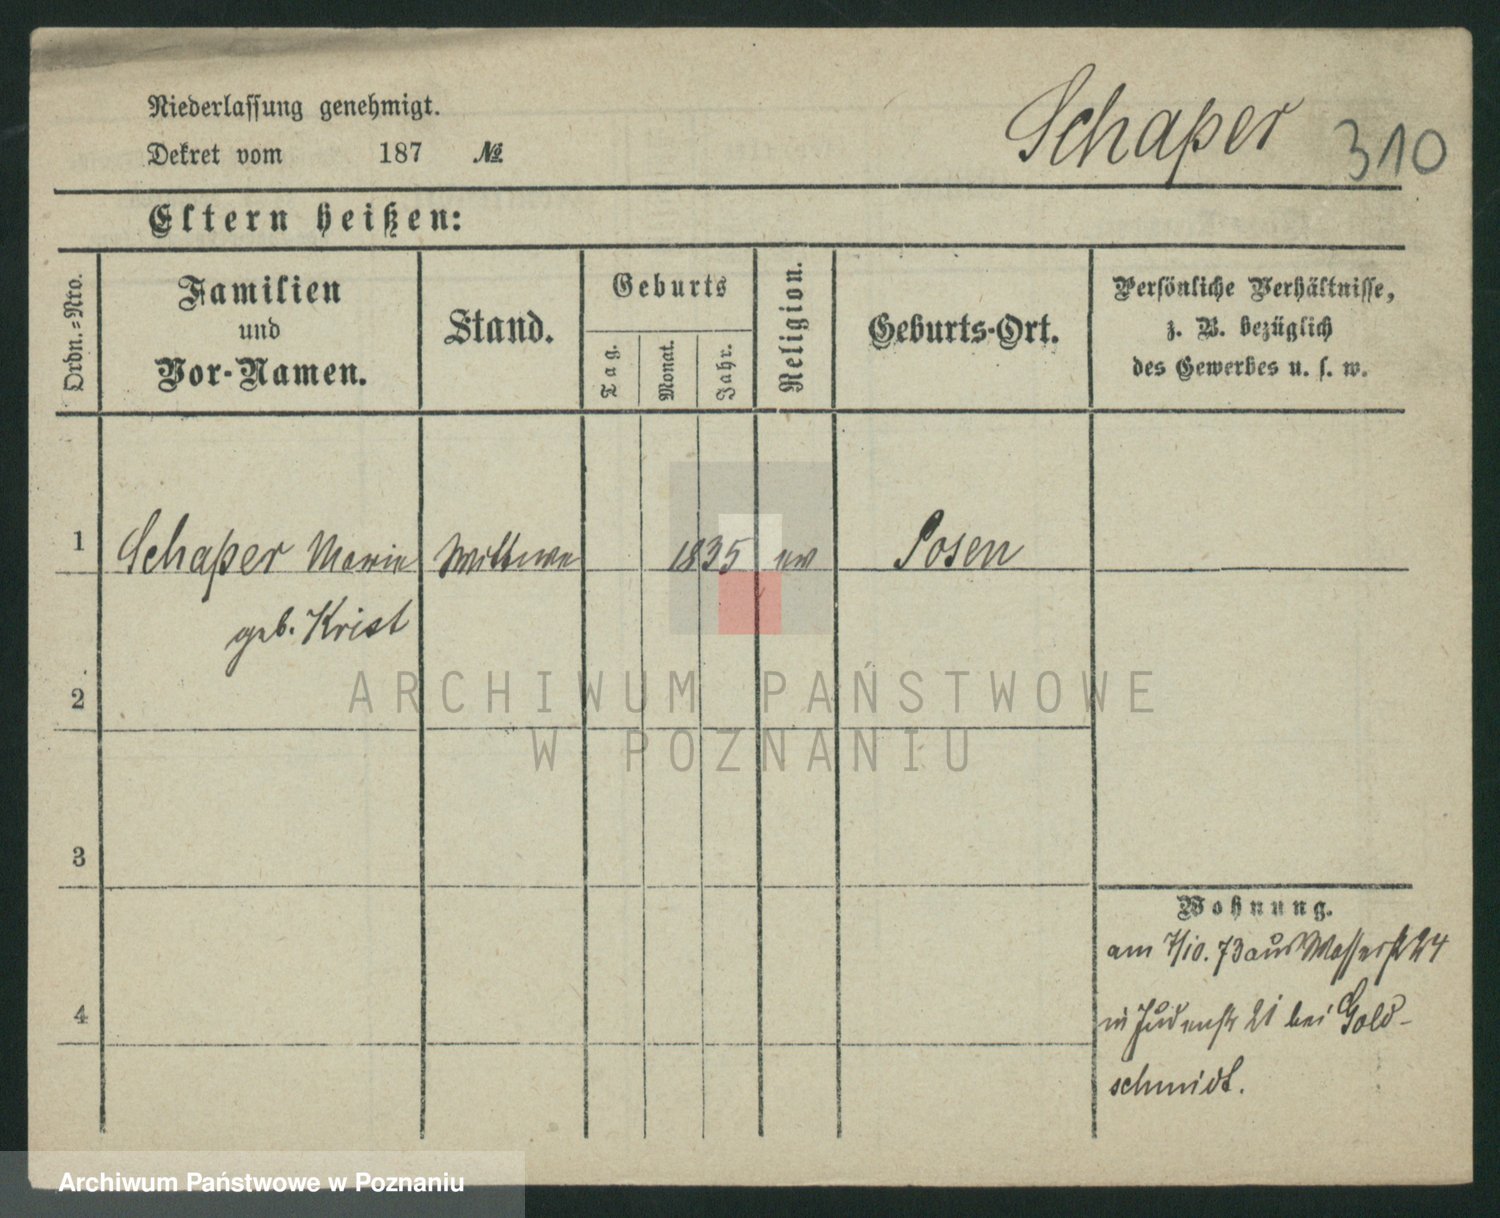 Niederlassung genehmigt.
Dekret vom 187 №
Schaper 310
Eltern heißen:
Ordn.=Nro.
Familien
und
Vor-Namen.
Stand.
Geburts
Tag.
Monat.
Jahr.
Religion.
Geburts-Ort.
Persönliche Verhältnisse,
z. B. bezüglich
des Gewerbes u. s. w.
1 Schaper Marie Wittwe 1835 ev Posen
geb. Krist
2
ARCHIWUM PAŃSTWOWE
W POZNANIU
3
Wohnung.
am 7/10. 73 aus Wasserstr 24
4
in Judenstr 21 bei Gold-
schmidt.
Archiwum Państwowe w Poznaniu